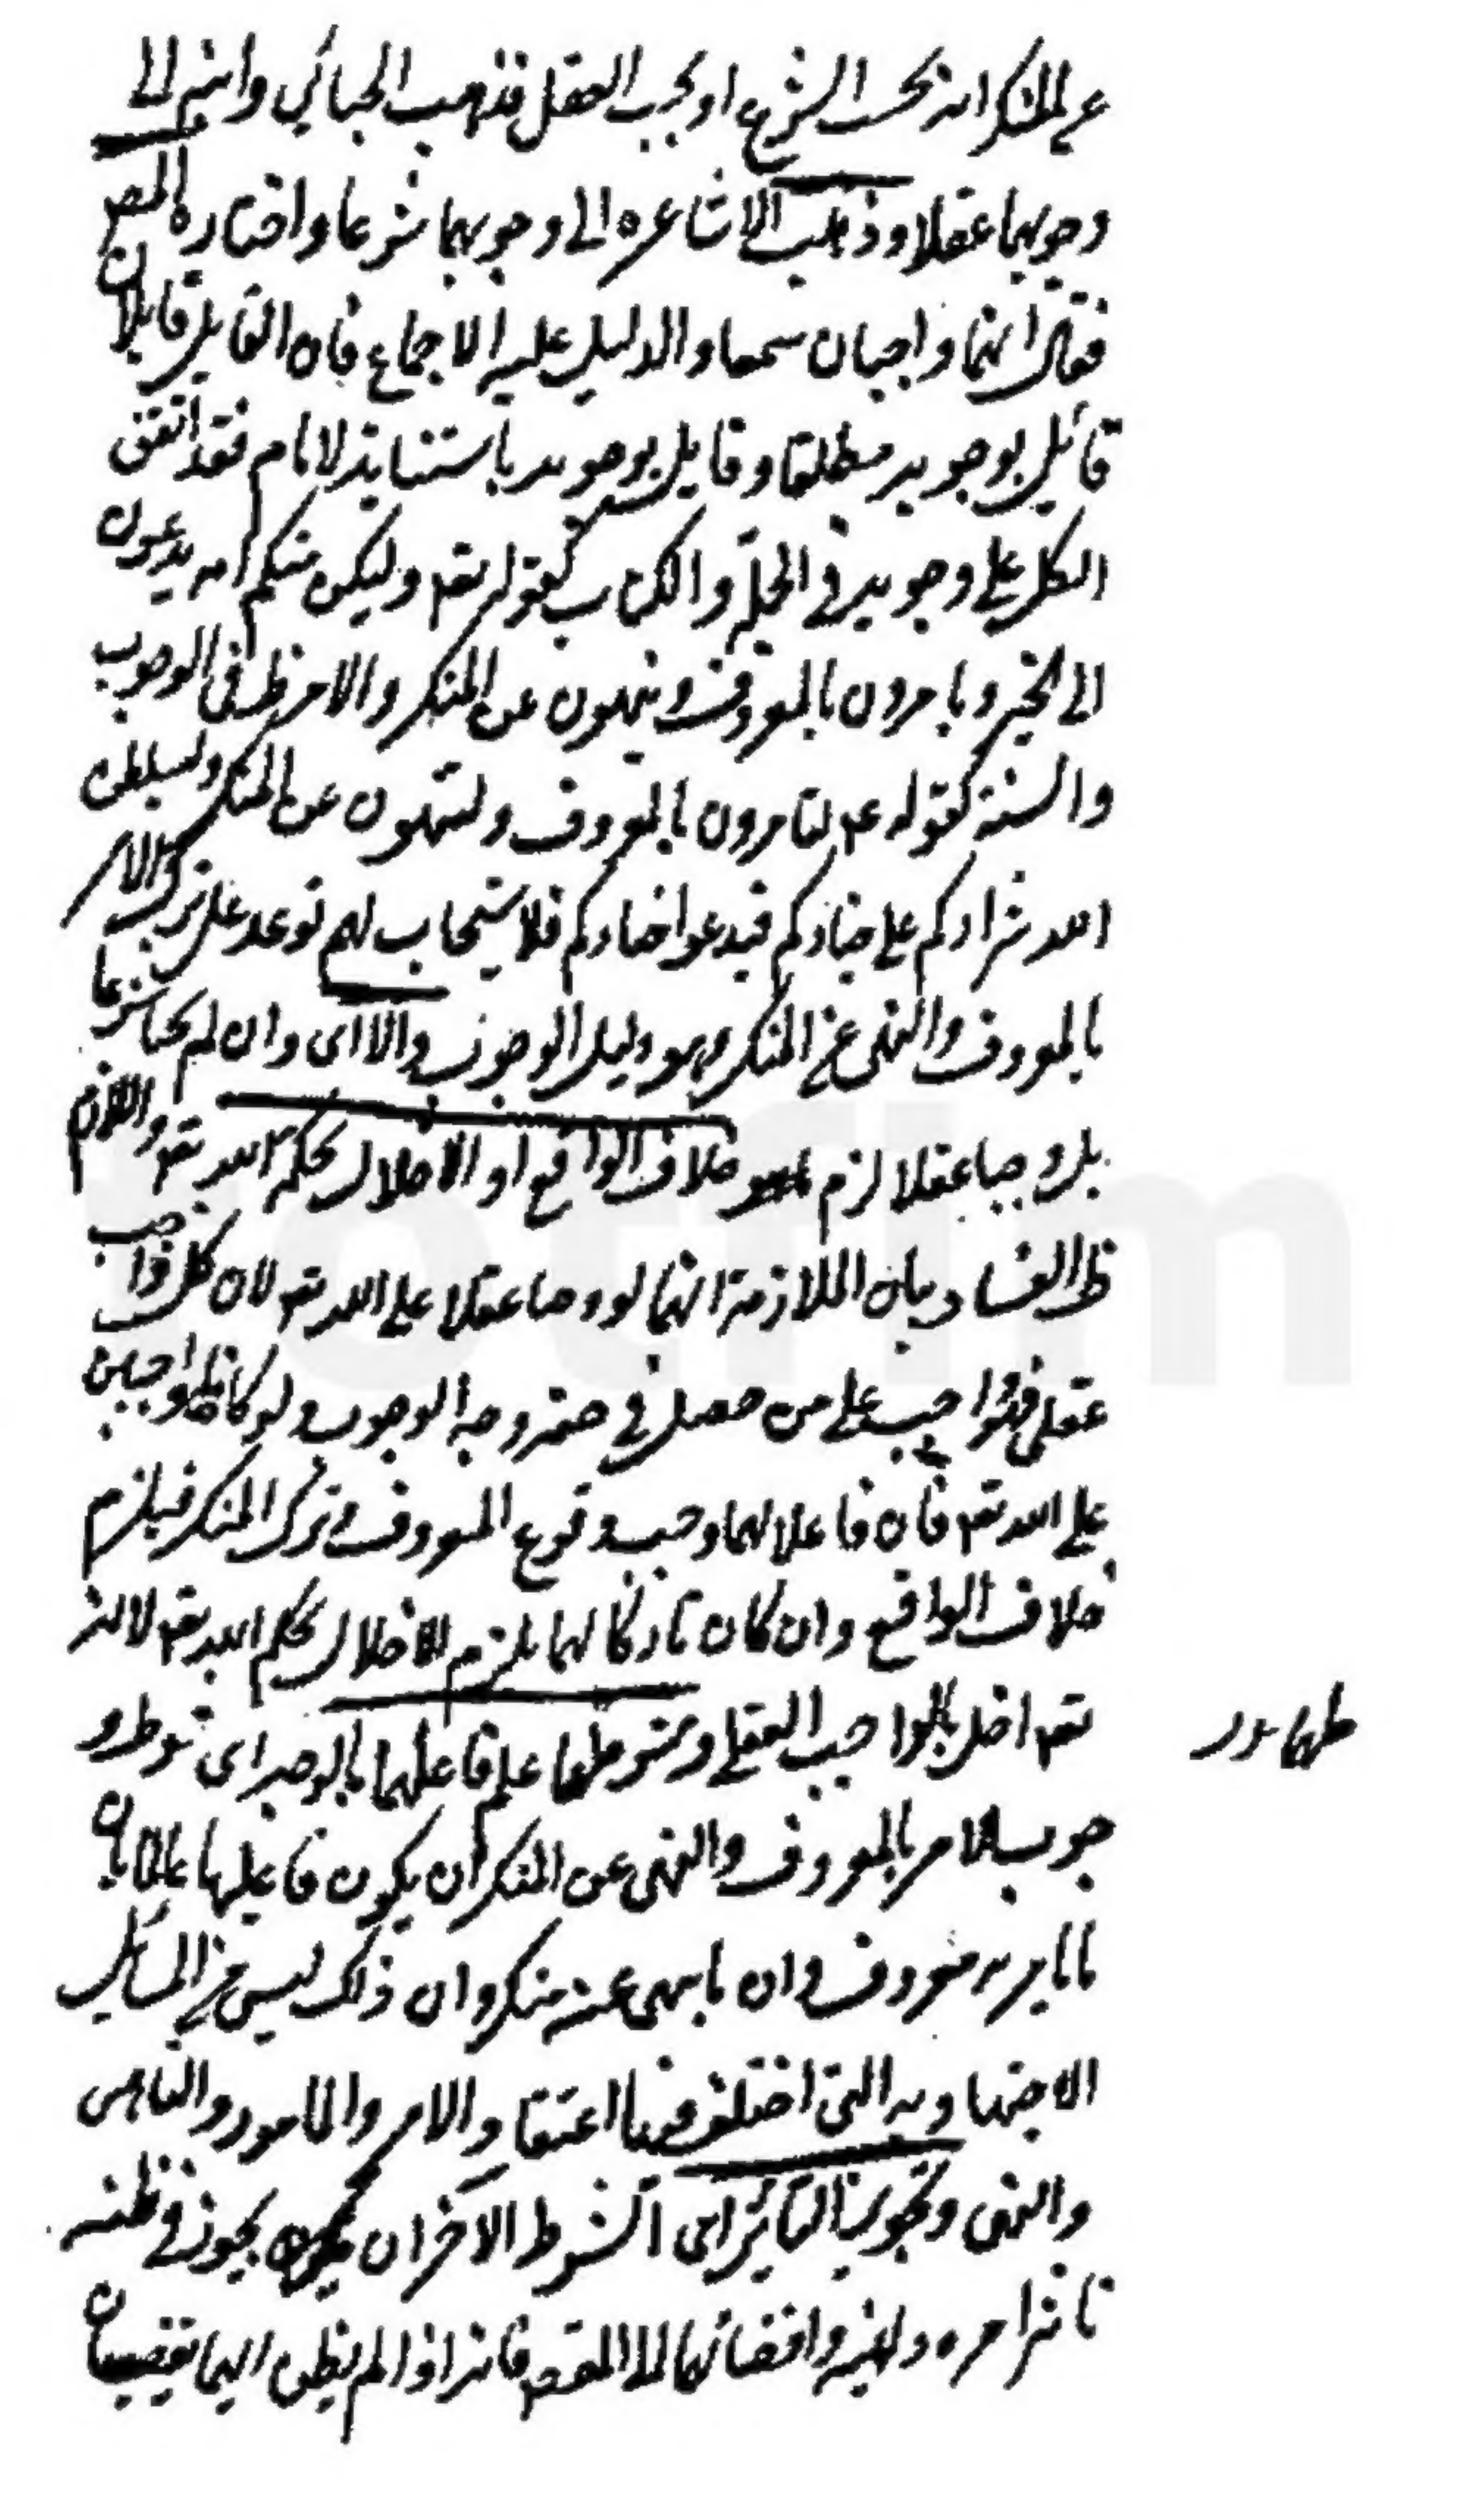 عن المنكر انه بحسب الشرع او بحسب العقل فذهب الجبائي وابنه الى
وجوبهما عقلا وذهب الاشاعره الى وجوبهما شرعا واختاره المص
فقال انهما واجبان سمعا والدليل عليه الاجماع فان القايل قايلان
قائل بوجوبه مطلقا وقايل بوجوبه باستنابة الامام فقد اتفق
الكل على وجوبه في الجملة والكتاب كقوله تعه ولتكن منكم امه يدعون
الى الخير ويامرون بالمعروف وينهون عن المنكر والامر ظ في الوجوب
والسنة كقوله عم لتامرون بالمعروف ولتنهون عن المنكر وليسلطن
الله شراركم على خياركم فيدعو اخياركم فلا يستجاب لهم توعد على ترك الامر
بالمعروف والنهى عن المنكر وهو دليل الوجوب والا اى وان لم يجبا شرعا
بل وجبا عقلا لزم خلاف الواقع او الاخلال بحكمة الله تعه واللازم
ظ الفساد بيان الملازمة انهما لو وجبا عقلا على الله تعه لان كل واجب
عقلى فهو واجب على من حصل في حقه وجه الوجوب ولو كانا واجبين
على الله تعه فان فاعلا لهما وجب وقوع المعروف وترك المنكر فيلزم
خلاف الواقع وان كان تاركا لهما يلزم الاخلال بحكم الله تعه لانه
تعه اخل بالواجب العقلى وشرطهما علم فاعلهما بالوجه اى شرط و
جوب الامر بالمعروف والنهى عن المنكر ان يكون فاعلهما عالما بان
ما يامر به معروف وان ما ينهى عنه منكر وان ذلك ليس من المسايل
الاجتهاديه التى اختلف فيها اعتقاد الامر والمامور والناهى
والنهى وتجويز التاثير اى الشرط الاخر ان يجوز في ظنه
تاثير امره ونهيه وانتفائهما المقص فانه اذا لم يظن انهما يقضيان